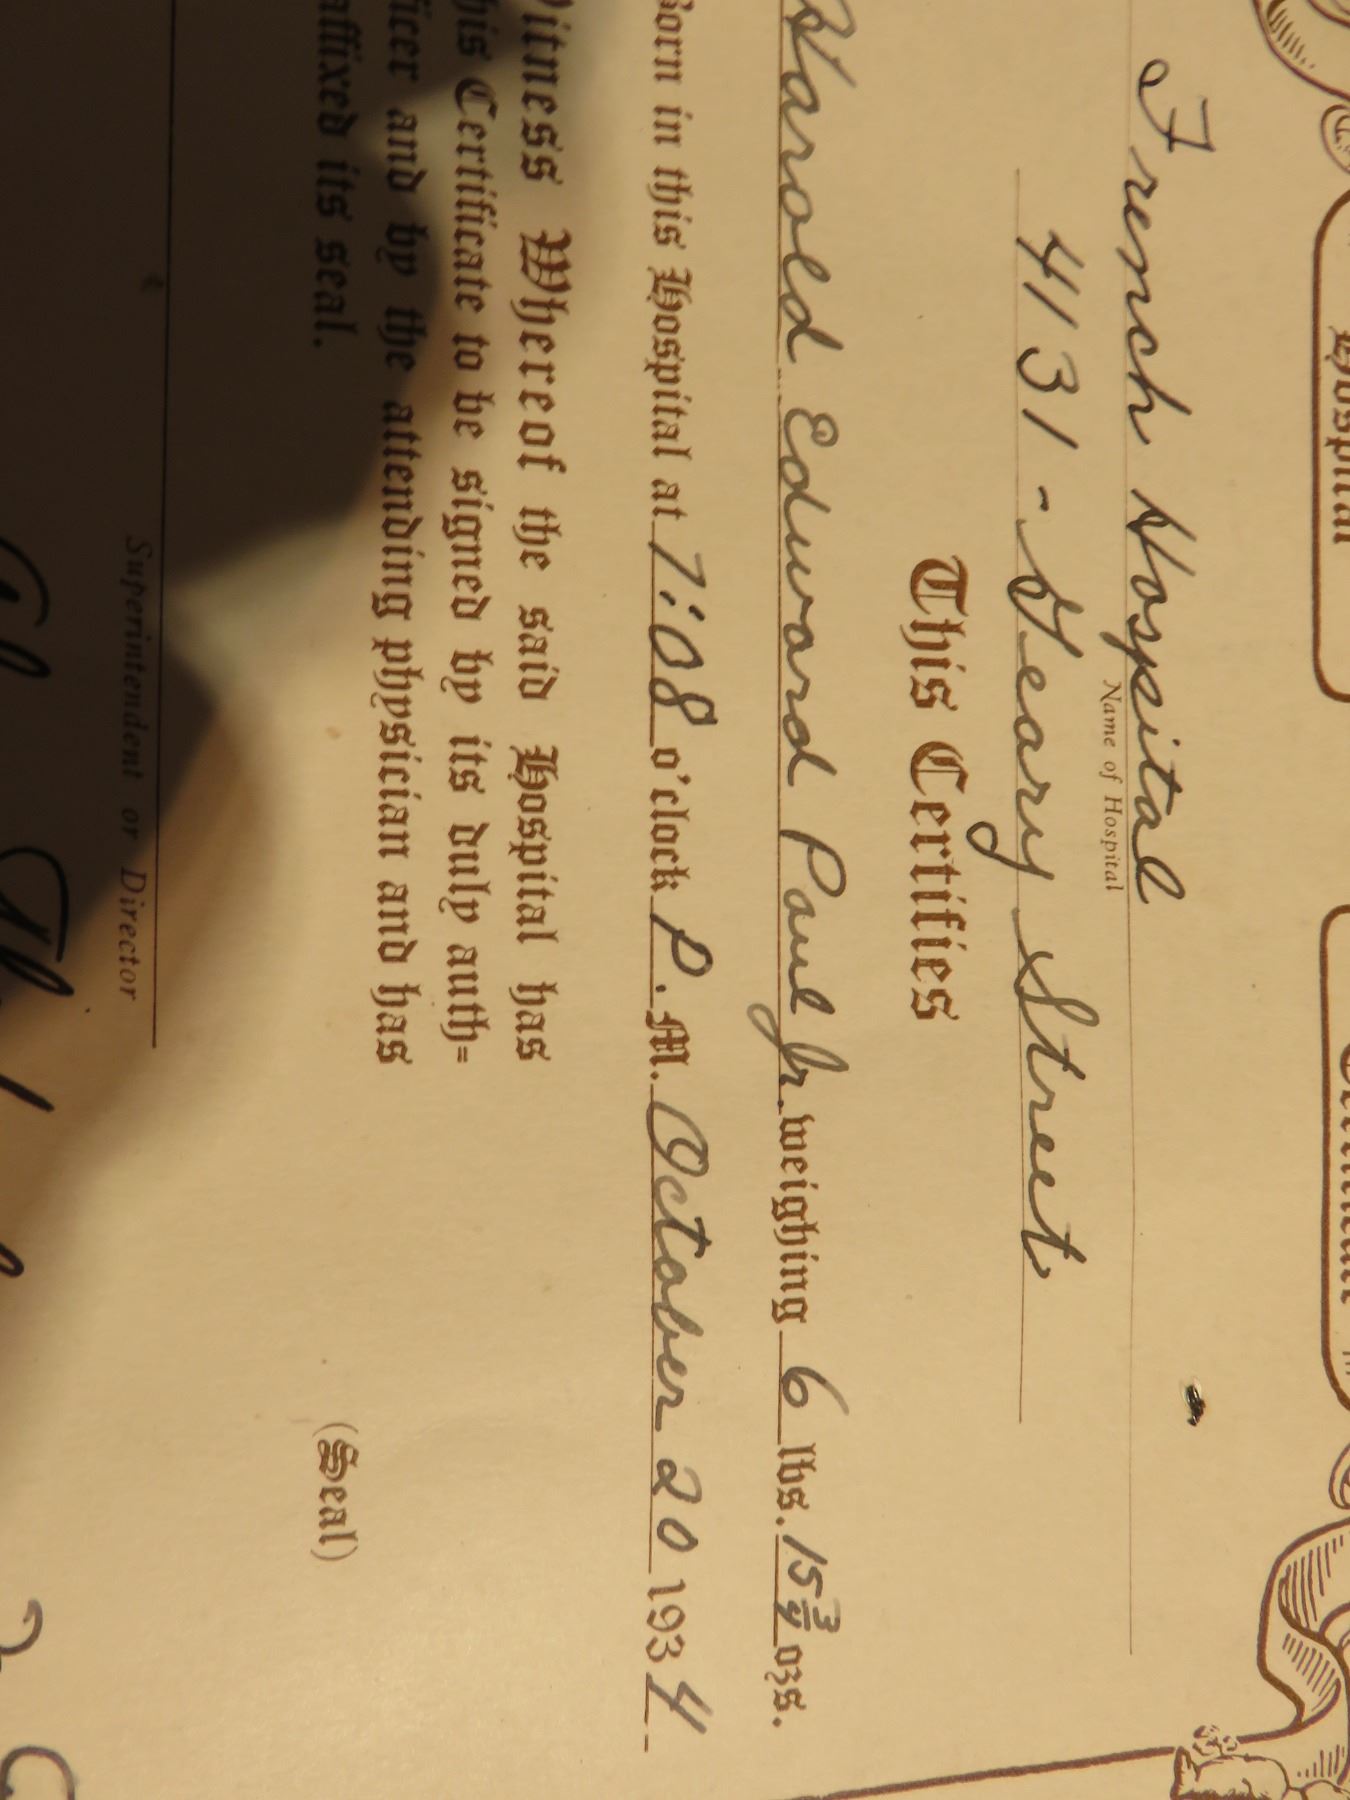 Hospital
French Hospital
Name of Hospital
4131 - Geary Street
This Certifies
Harold Edward Paul Jr. weighing 6 lbs. 15 3/4 ozs.
Born in this Hospital at 7:08 o'clock P. M. October 20 1934
Witness Whereof the said Hospital has
his Certificate to be signed by its duly auth=
ficer and by the attending physician and has
affixed its seal.
(Seal)
Superintendent or Director